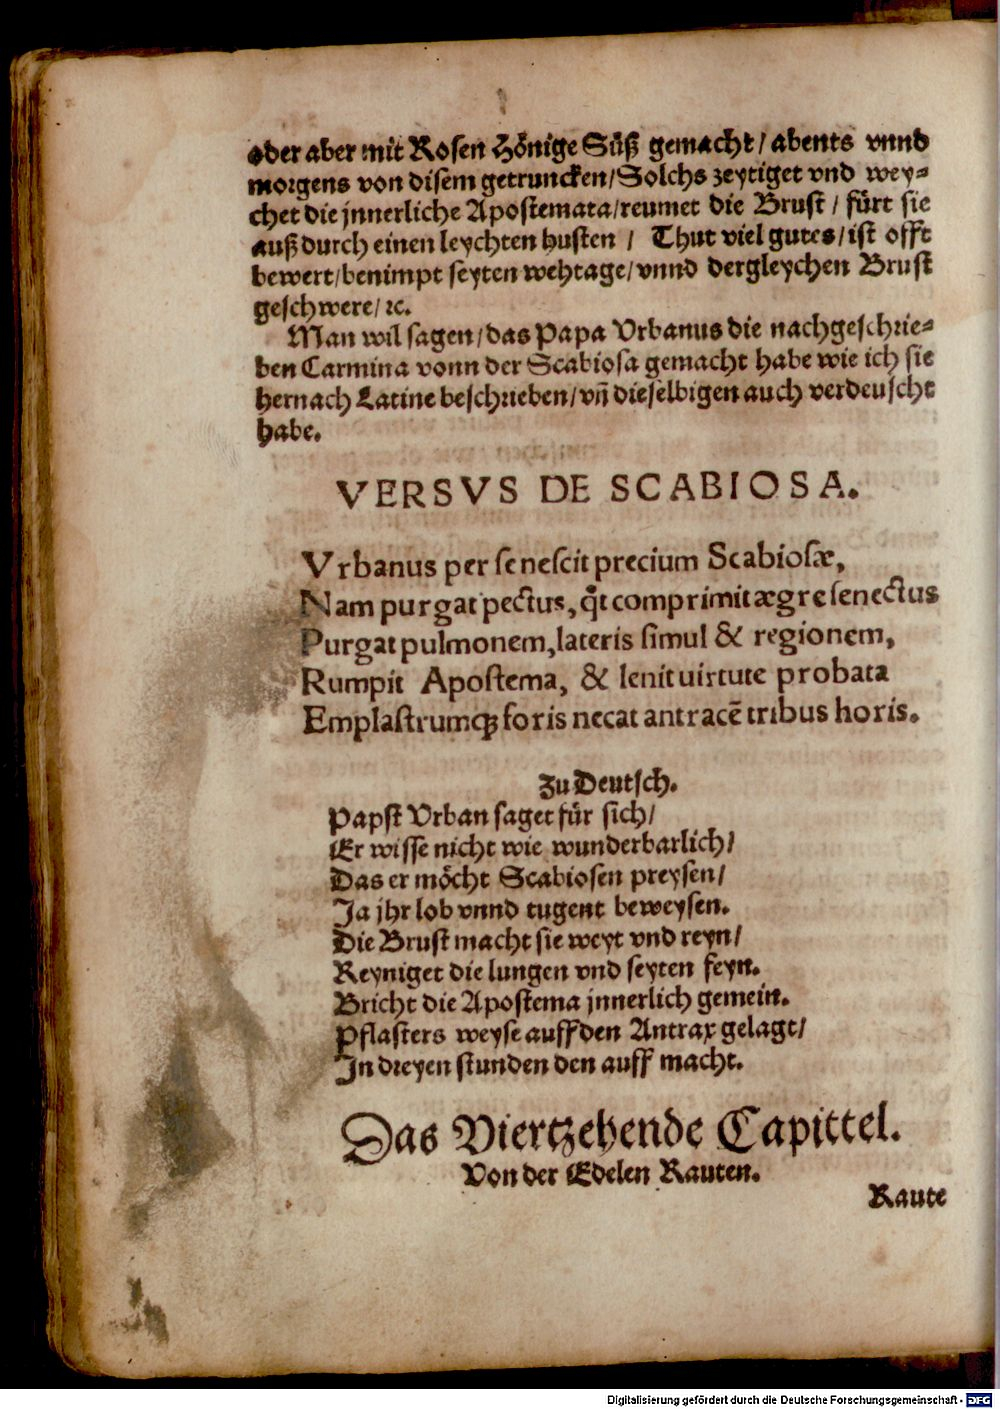 oder aber mit Rosen Hönige Süß gemacht / abents vnnd
morgens von disem getruncken/Solchs zeytiget vnd wey⸗
chet die jnnerliche Apostemata/reumet die Brust / fürt sie
auß durch einen leychten husten / Thut viel gutes/ist offt
bewert/benimpt seyten wehtage/vnnd dergleychen Brust
geschwere/ ꝛc.
Man wil sagen/das Papa Vrbanus die nachgeschrie⸗
ben Carmina vonn der Scabiosa gemacht habe wie ich sie
hernach Latine beschrieben/vñ dieselbigen auch verdeuscht
habe.
VERSVS DE SCABIOSA.
Vrbanus per se nescit precium Scabiosæ,
Nam purgat pectus, q̃t comprimit ægre senectus
Purgat pulmonem, lateris simul & regionem,
Rumpit Apostema, & lenit uirtute probata
Emplastrumq; foris necat antracē tribus horis.
Zu Deutsch.
Papst Vrban saget für sich/
Er wisse nicht wie wunderbarlich/
Das er möcht Scabiosen preysen/
Ja jhr lob vnnd tugent beweysen.
Die Brust macht sie weyt vnd reyn/
Reyniget die lungen vnd seyten feyn.
Bricht die Apostema jnnerlich gemein.
Pflasters weyse auff den Antrax gelagt/
In dreyen stunden den auff macht.
Das Viertzehende Capittel.
Von der Edelen Rauten.
Raute
Digitalisierung gefördert durch die Deutsche Forschungsgemeinschaft - DFG